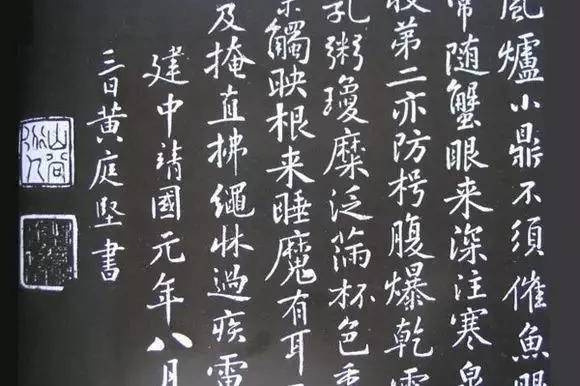 風爐小鼎不須催魚眼
常随蟹眼来深注寒泉
收第二亦防枵腹爆乾雷
乳粥瓊糜泛滿杯色香
味觸映根来睡魔有耳不
及掩直拂繩牀過疾雷
建中靖國元年八月
三日黄庭堅書
山谷道人